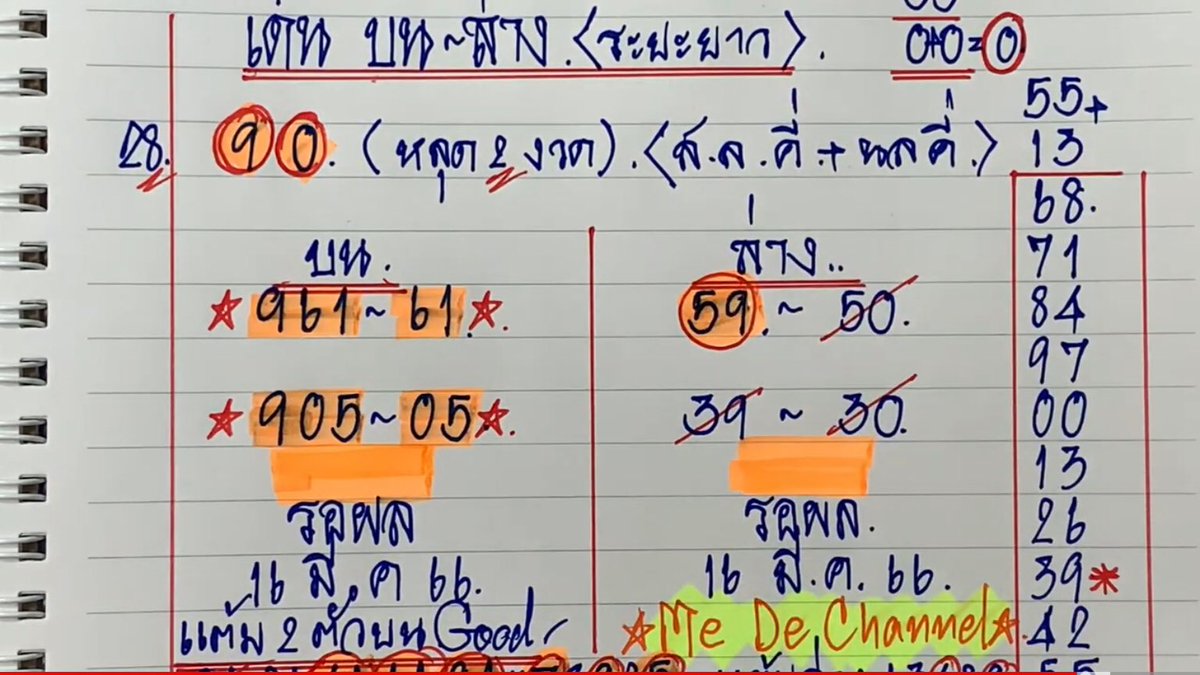 เด่น บน~ล่าง.<ระยะยาว>.
0+0=0
28. 90. (หลุด 2 งวด).<ส.ล.คี่.+นลคี่.>
55+
13
68.
71
84
97
00
13
26
39*
42
55
บน.
961~61.
905~05.
รอผล
16 มี.ค 66.
แต้ม 2 ตัวบน Good
ล่าง..
59.~50.
39~30.
รอผล.
16 มี.ค. 66.
Me De Channel